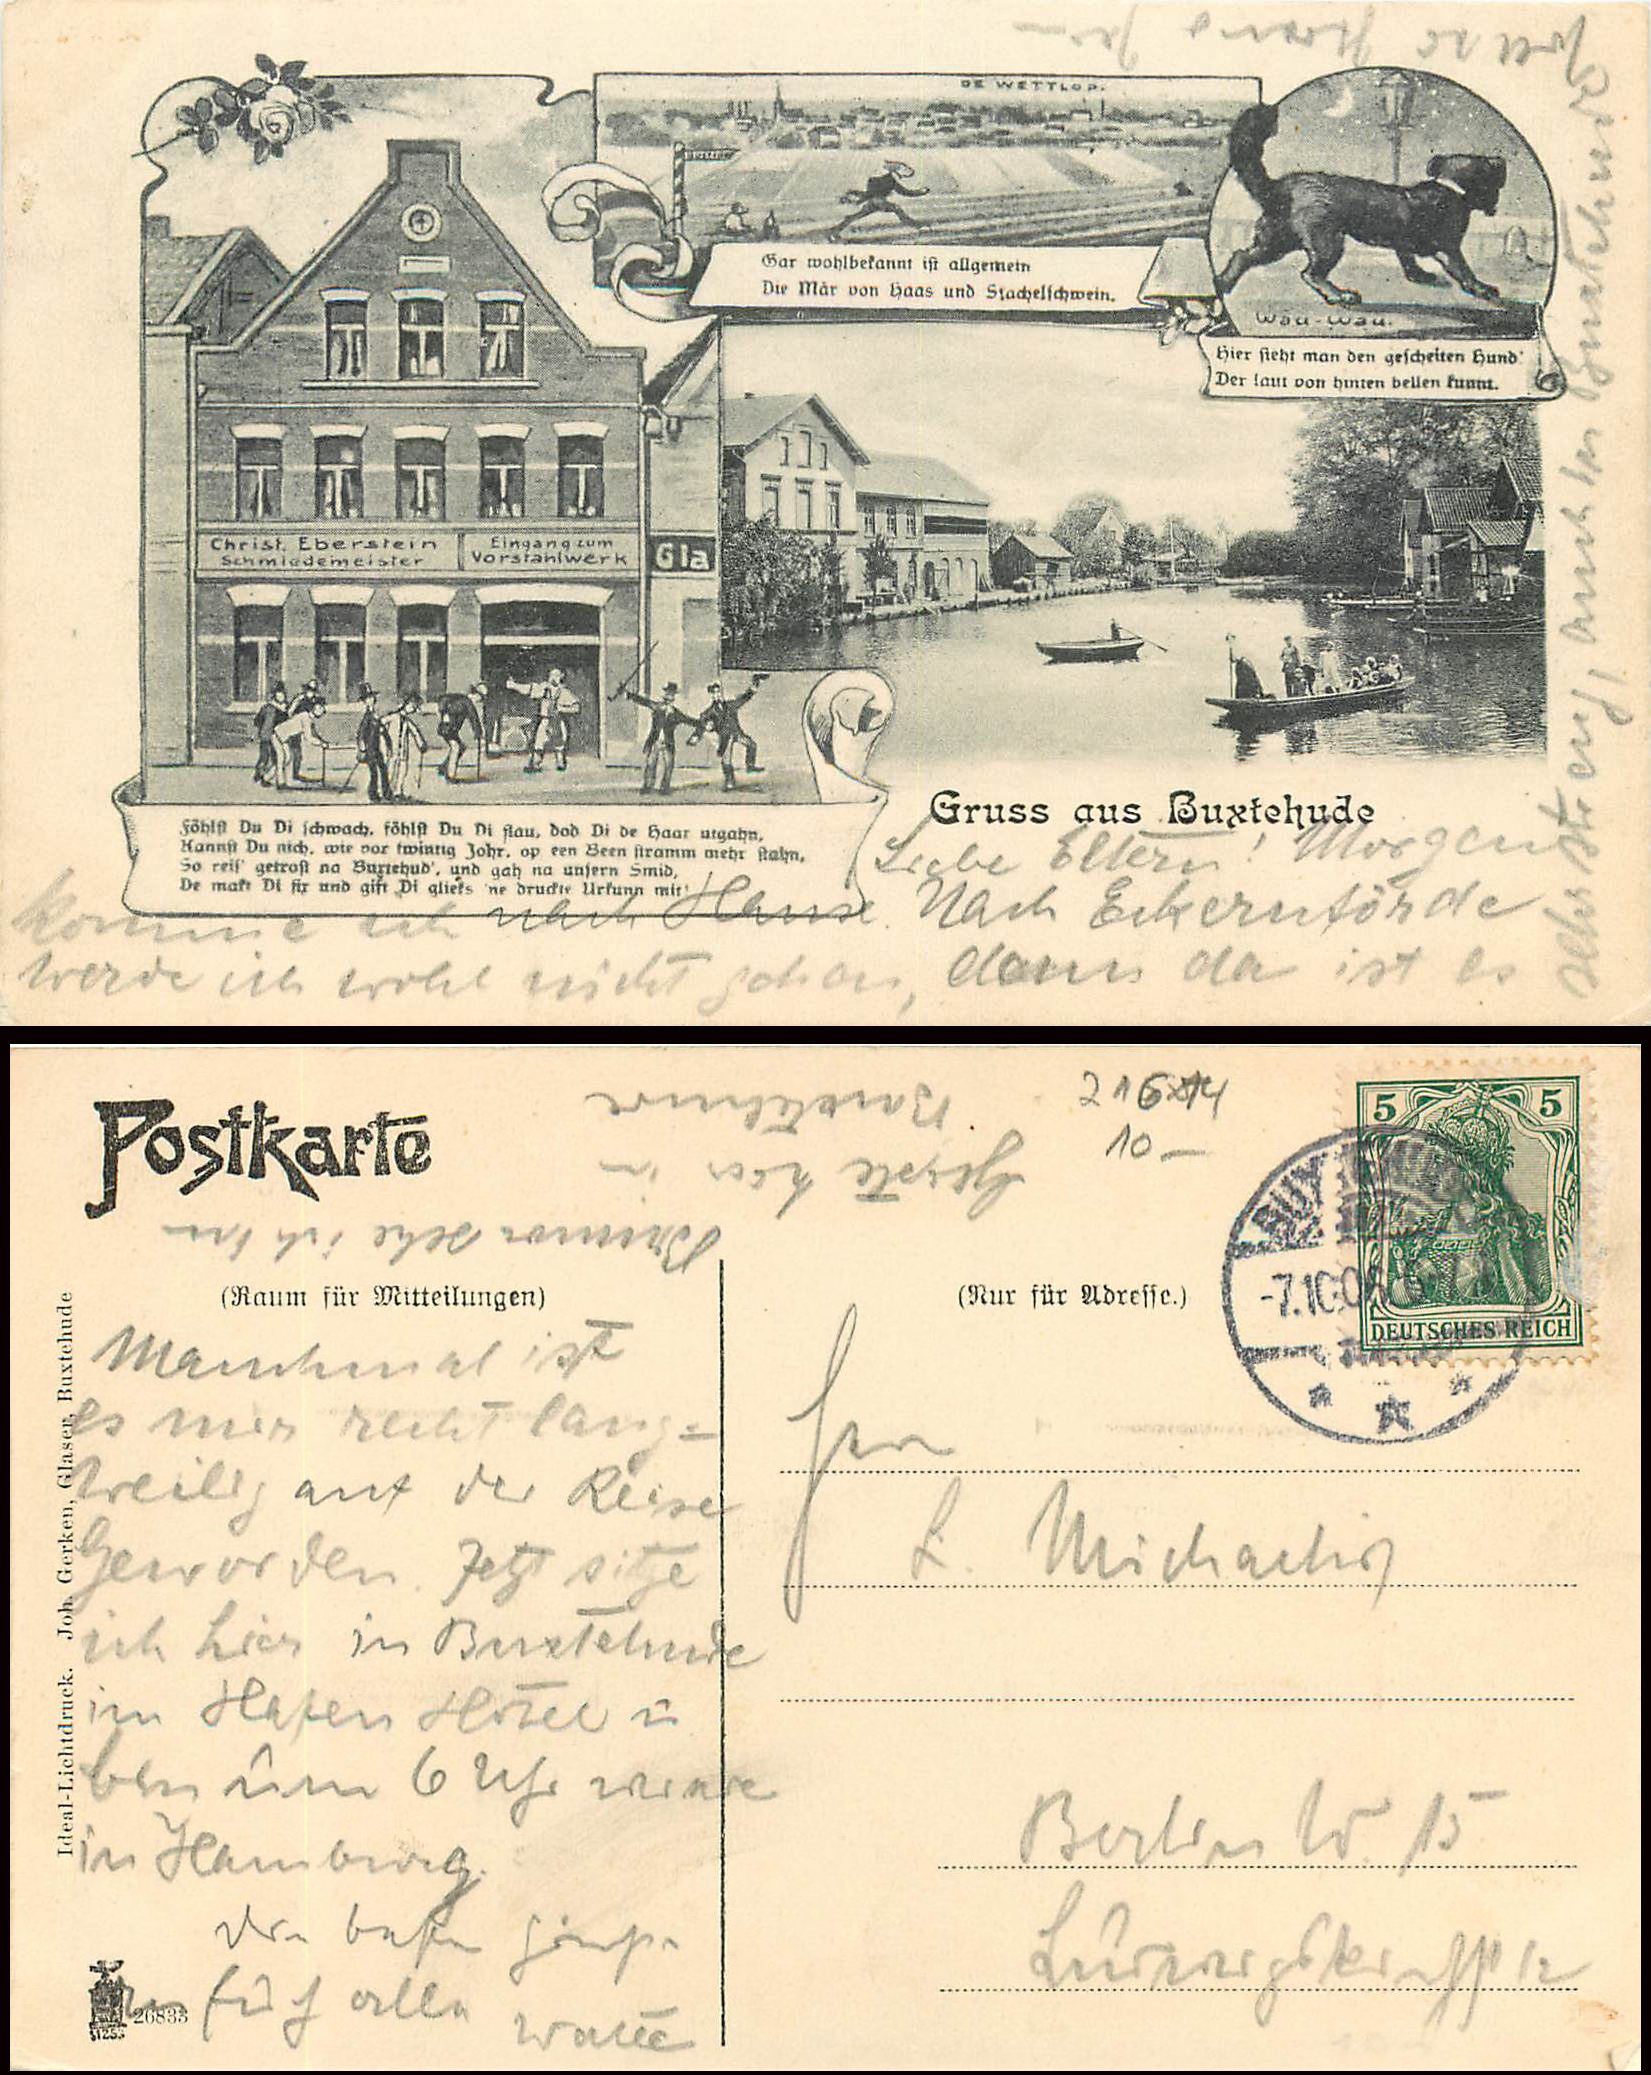 DE WETTLOP.
Gar wohlbekannt ist allgemein
Die Mär von Haas und Stachelschwein.
Wau-Wau.
Hier sieht man den gescheiten Hund
Der laut von hinten bellen kunnt.
Christ. Eberstein
Schmiedemeister
Eingang zum
Vorstahlwerk
Gla
Föhlst Du Di schwach, föhlst Du Di flau, dod Di de Haar utgahn,
Kannst Du nich, wie vor twintig Johr, op een Been stramm mehr stahn,
So reis' getrost na Buxtehud', und gah na unsern Smid,
De makt Di fix und gift Di glieks 'ne druckte Urkunn mit!
Gruss aus Buxtehude
Liebe Eltern! Morgen
komme ich nach Hause. Nach Eckernförde
werde ich wohl nicht gehen, denn da ist es
sehr auch in Buxtehude
Postkarte
Buxtehude
hier in
(Raum für Mitteilungen)
(Nur für Adresse.)
5 5
DEUTSCHES REICH
BUXTEHUDE
-7.10.06
21614
10 -
Manchmal ist
es mir recht lang=
weilig auf der Reise
geworden. Jetzt sitze
ich hier in Buxtehude
im Hafen Hotel u
bin um 6 Uhr
in Hamburg.
alle
Walter
Herrn
L. Michaelis
Berlin W. 15
Ideal-Lichtdruck. Joh. Gerken, Glaser, Buxtehude
26833
51253